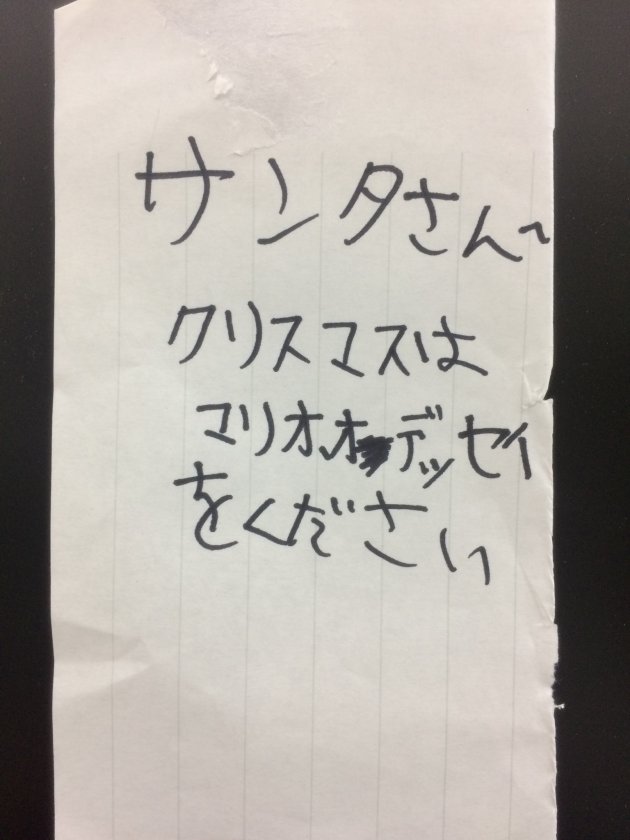 サンタさんへ
クリスマスは
マリオオデッセイ
をください